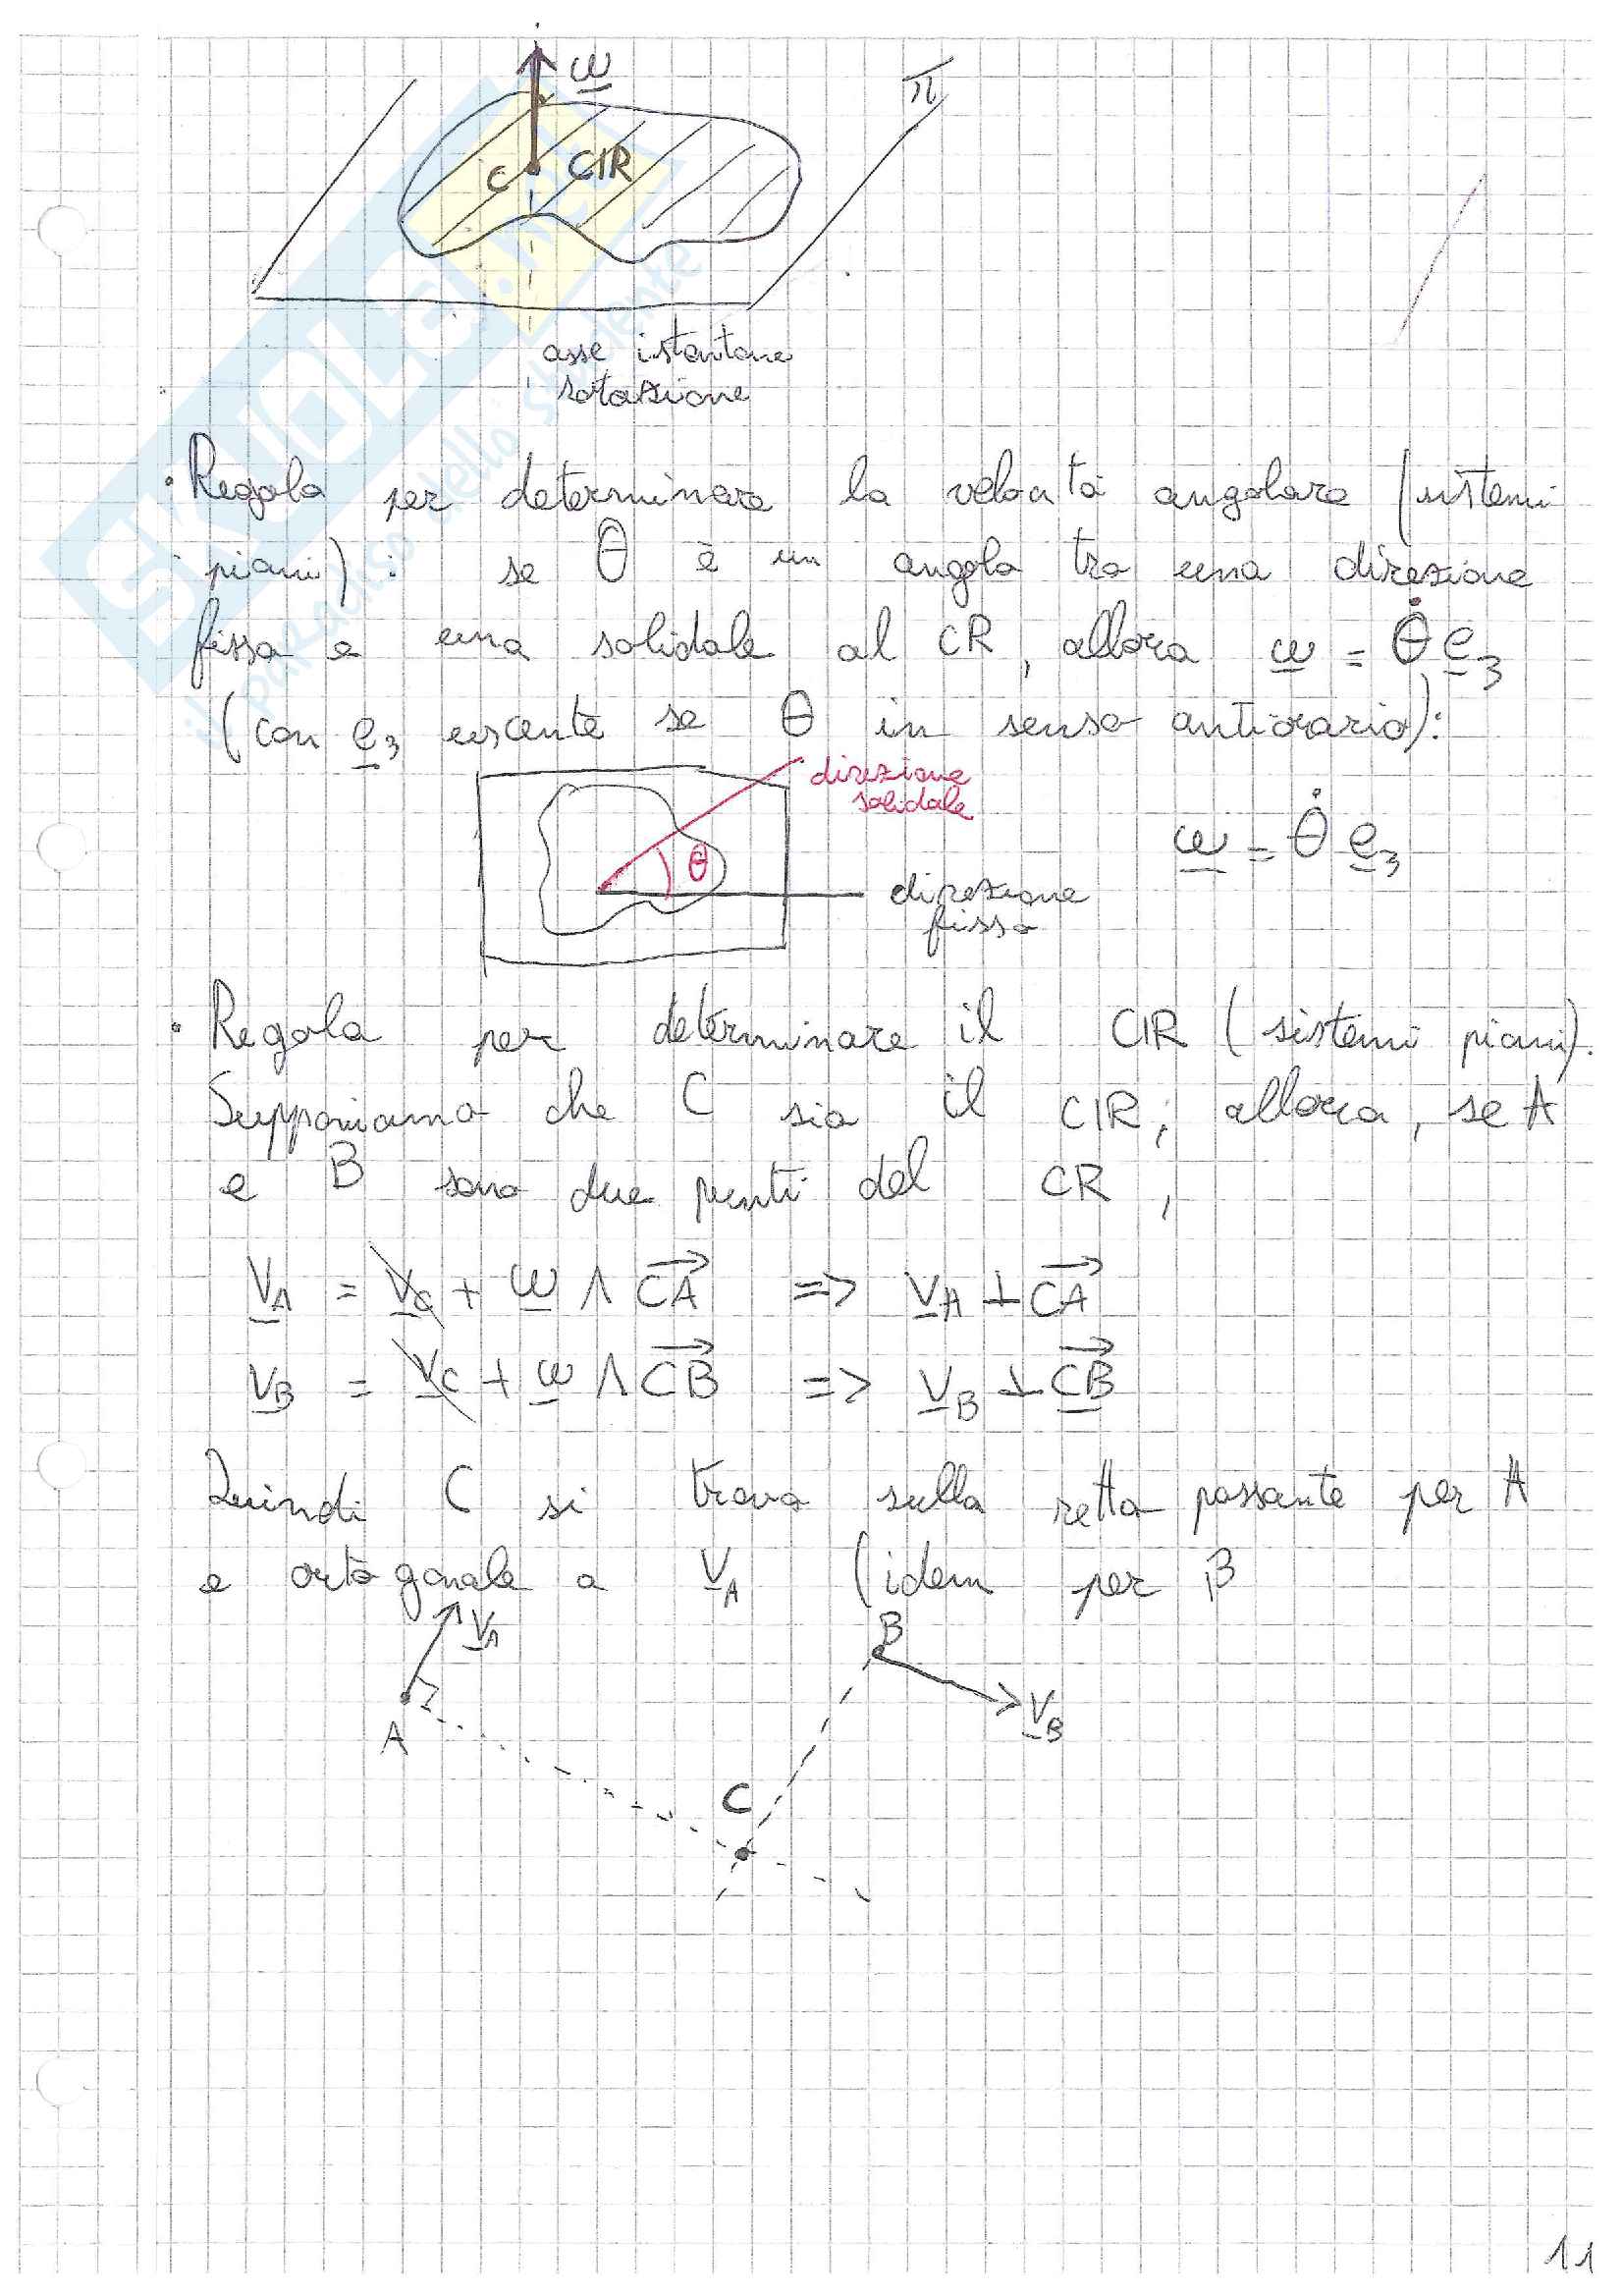 ω
π
C CIR
asse istantane
rotazione
• Regola per determinare la velocità angolare (sistemi
piani): se θ è un angolo tra una direzione
fissa e una solidale al CR, allora ω = θ̇ e₃
(con e₃ uscente se θ in senso antiorario):
direzione
solidale
θ
ω = θ̇ e₃
direzione
fissa
• Regola per determinare il CIR (sistemi piani).
Supponiamo che C sia il CIR; allora, se A
e B sono due punti del CR,
v_A = v_C + ω ∧ CA => v_A ⊥ CA
v_B = v_C + ω ∧ CB => v_B ⊥ CB
Quindi C si trova sulla retta passante per A
e ortogonale a v_A (idem per B
v_A
B
v_B
A
C
11